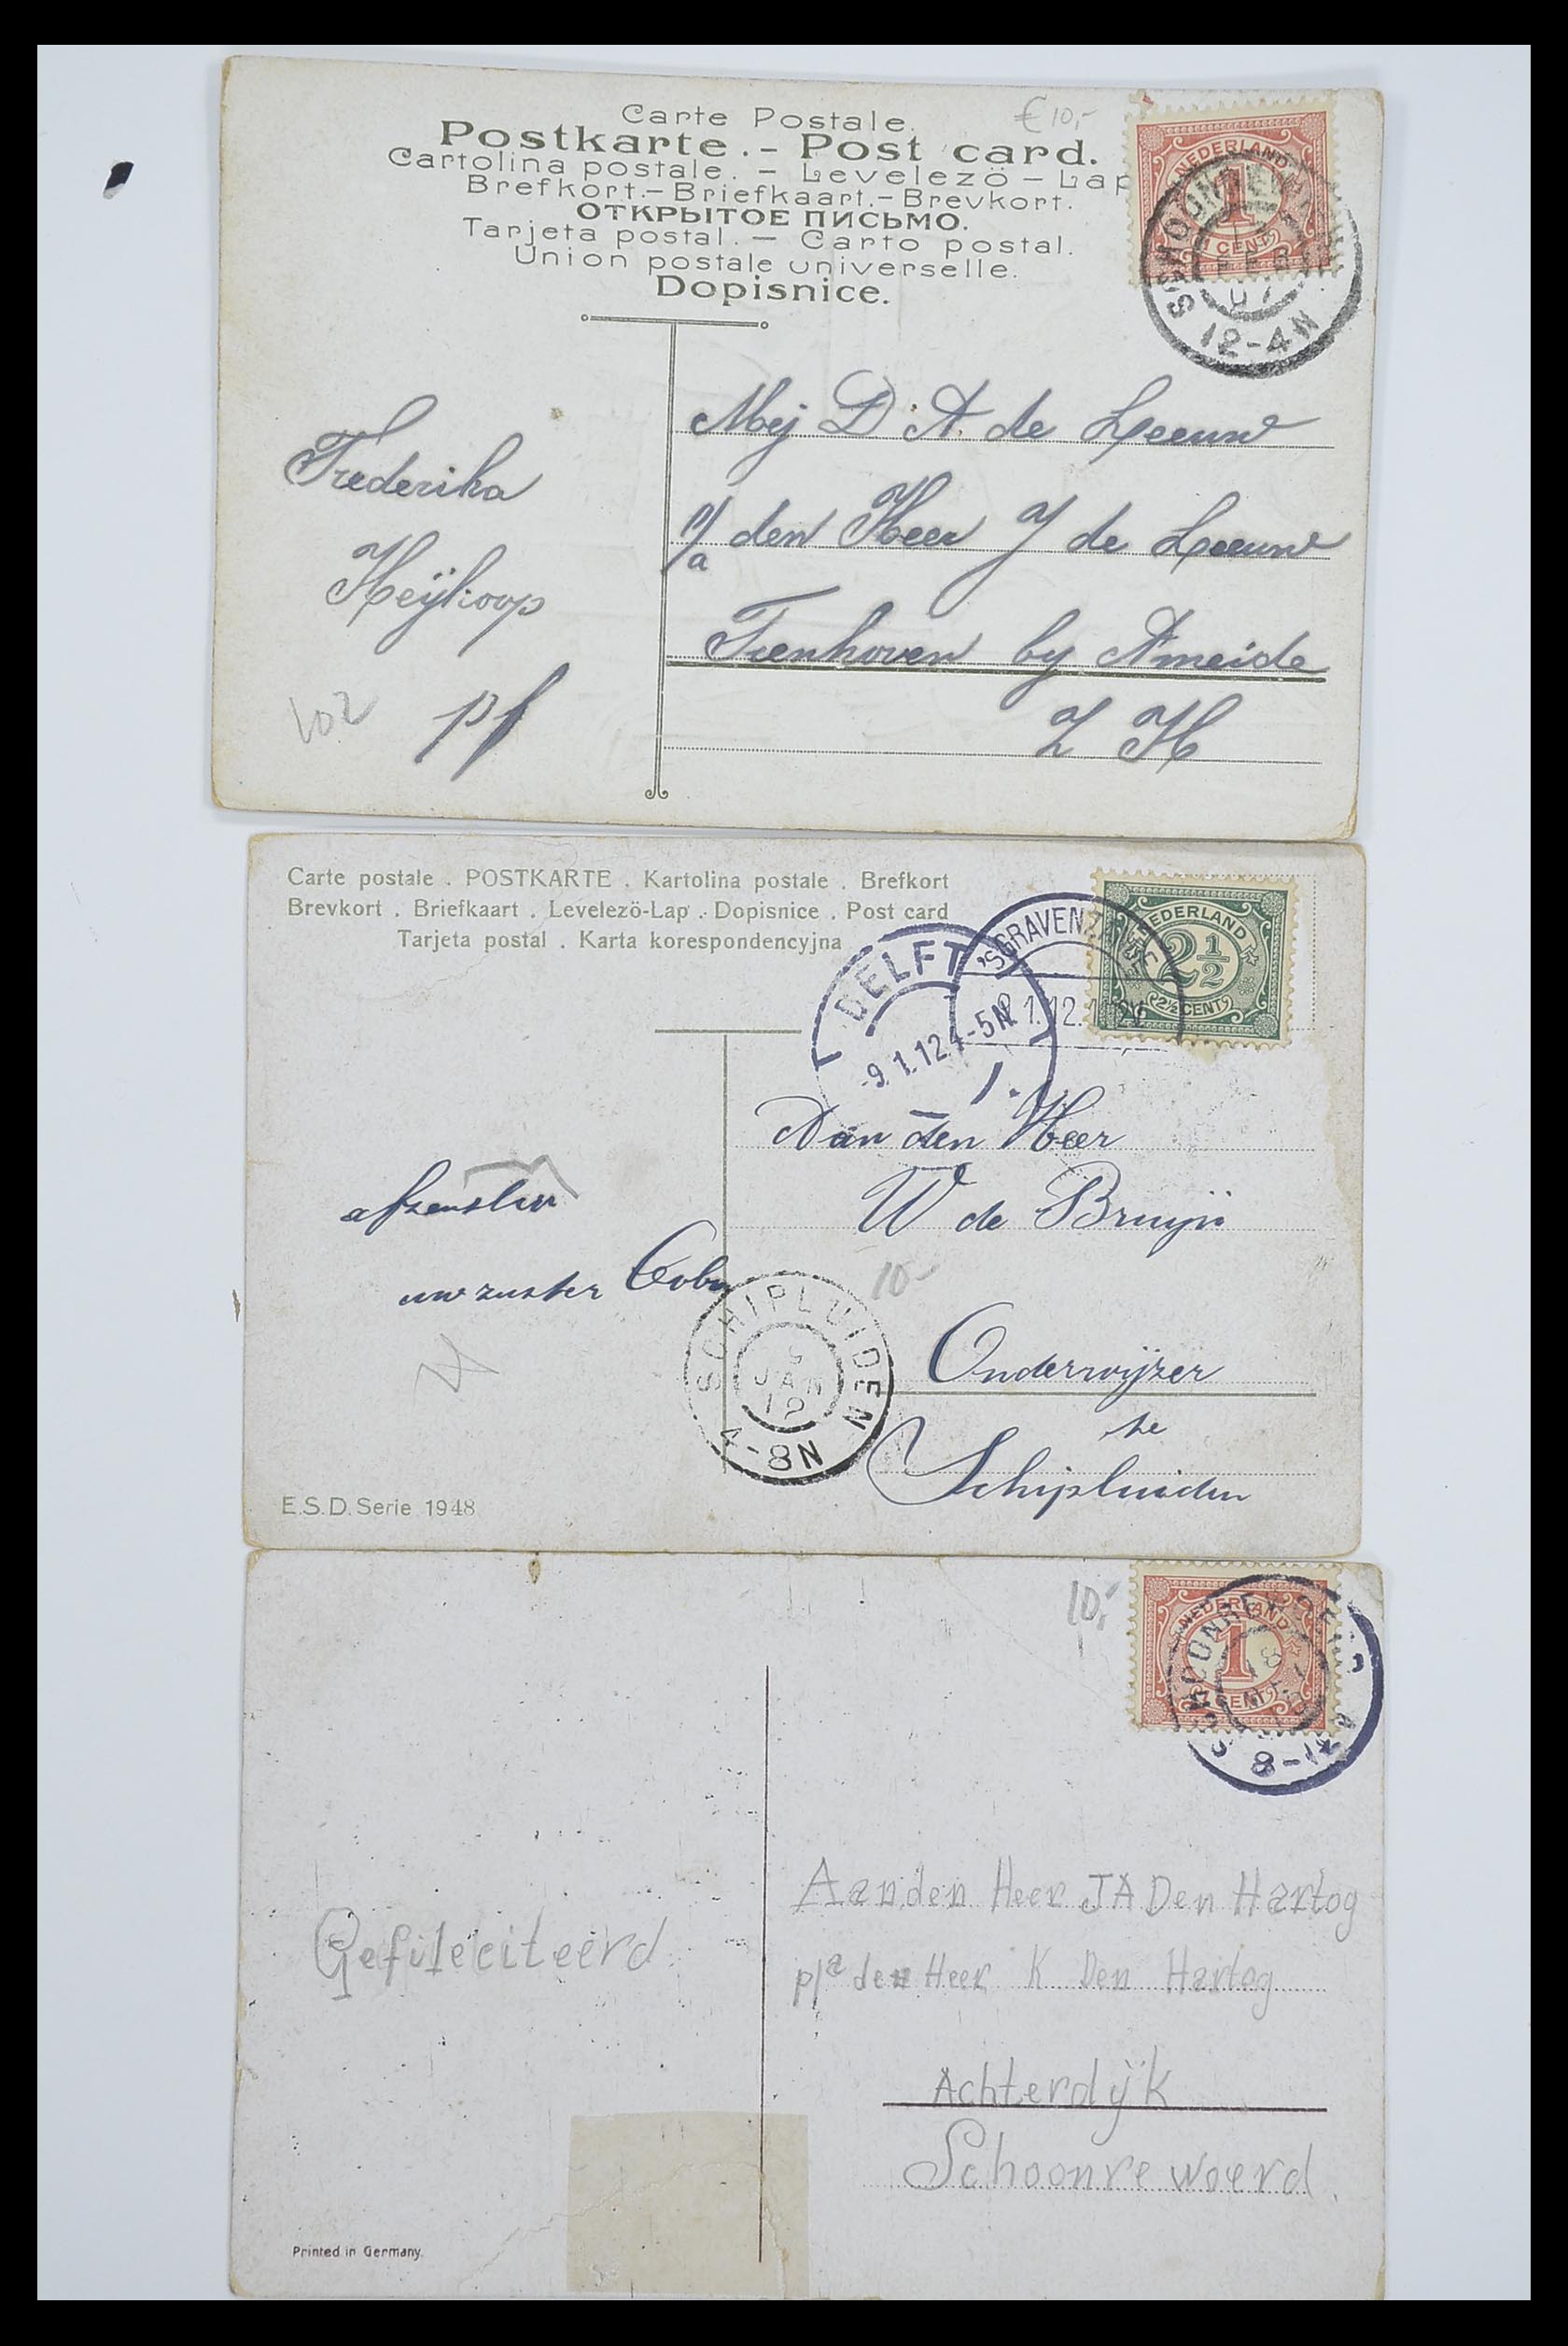 Carte Postale.
Postkarte. - Post card.
Cartolina postale. - Levelezö - Lap
Brefkort.- Briefkaart.- Brevkort.
ОТКРЫТОЕ ПИСЬМО.
Tarjeta postal. - Carto postal.
Union postale universelle.
Dopisnice.
€ 10,-
NEDERLAND
1
1 CENT
FEB
07
12-4N
Frederika
Heijkoop
pf
102
Mej D. A. de Leeuw
p/a den Heer J de Leeuw
Tienhoven by Ameide
Z H
Carte postale . POSTKARTE . Kartolina postale . Brefkort
Brevkort . Briefkaart . Levelezö-Lap . Dopisnice . Post card
Tarjeta postal . Karta korespondencyjna
DELFT
-9.1.12 4-5N
'SGRAVENZANDE
NEDERLAND
2½
2½ CENT
afzendster
uw zuster Coba
SCHIPLUIDEN
JAN
12
4-8N
Aan den Heer
W de Bruijn
10-
Onderwijzer
te
Schipluiden
E.S.D. Serie 1948
10,-
NEDERLAND
1
1 CENT
SCHOONREWOERD
8-12
Gefileciteerd
Aan den Heer JA Den Hartog
p/a den Heer K Den Hartog
Achterdÿk
Schoonrewoerd.
Printed in Germany.